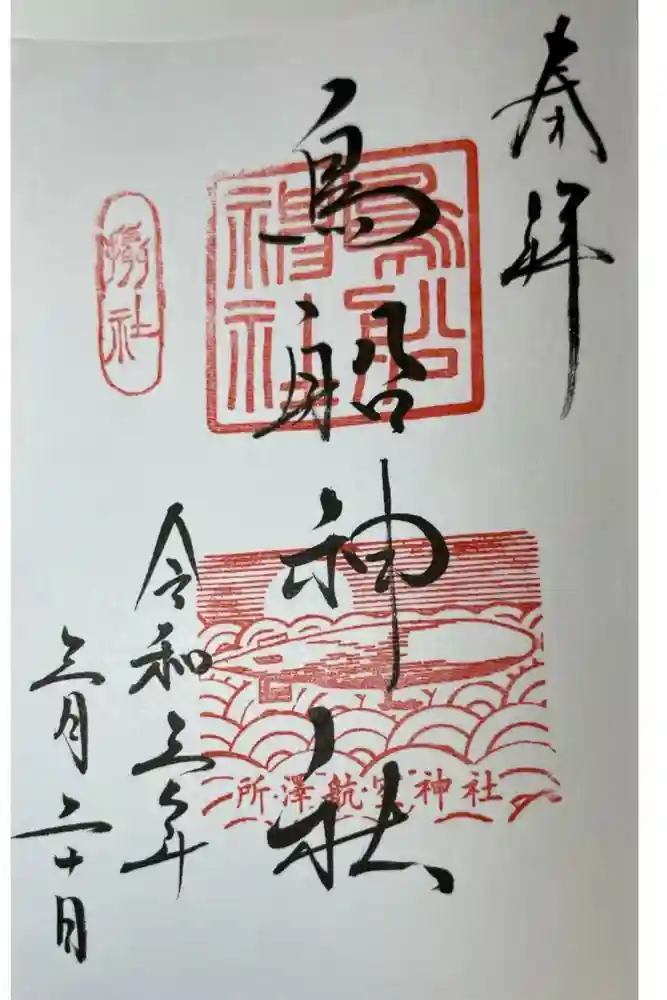 奉拝
鳥船神社
鳥船
神社
所澤航空神社
令和三年
三月二十日